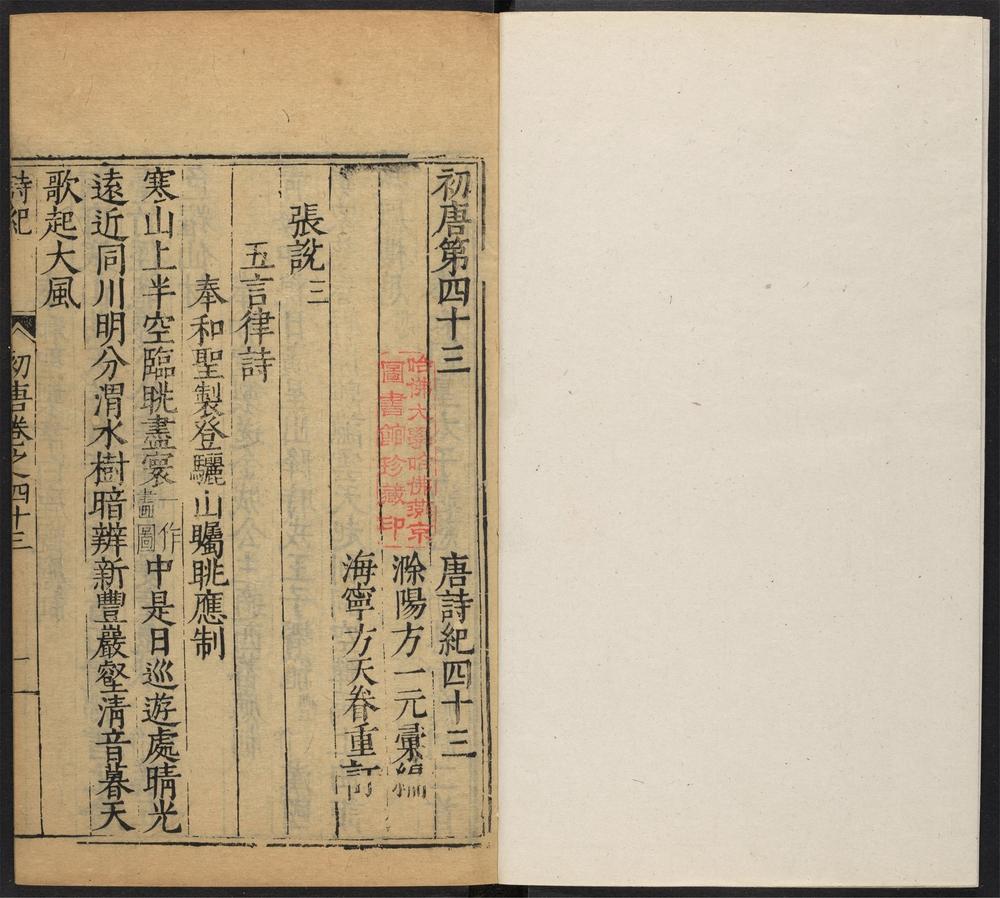 初唐第四十三 唐詩紀四十三
滁陽方一元彙編
海寧方天眷重訂
張說三
五言律詩
奉和聖製登驪山矚眺應制
寒山上半空臨眺盡寰一作畫圖中是日巡遊處晴光
遠近同川明分渭水樹暗辨新豐巖壑清音暮天
歌起大風
詩紀 初唐卷之四十三 一
哈佛大學哈佛燕京
圖書館珍藏印